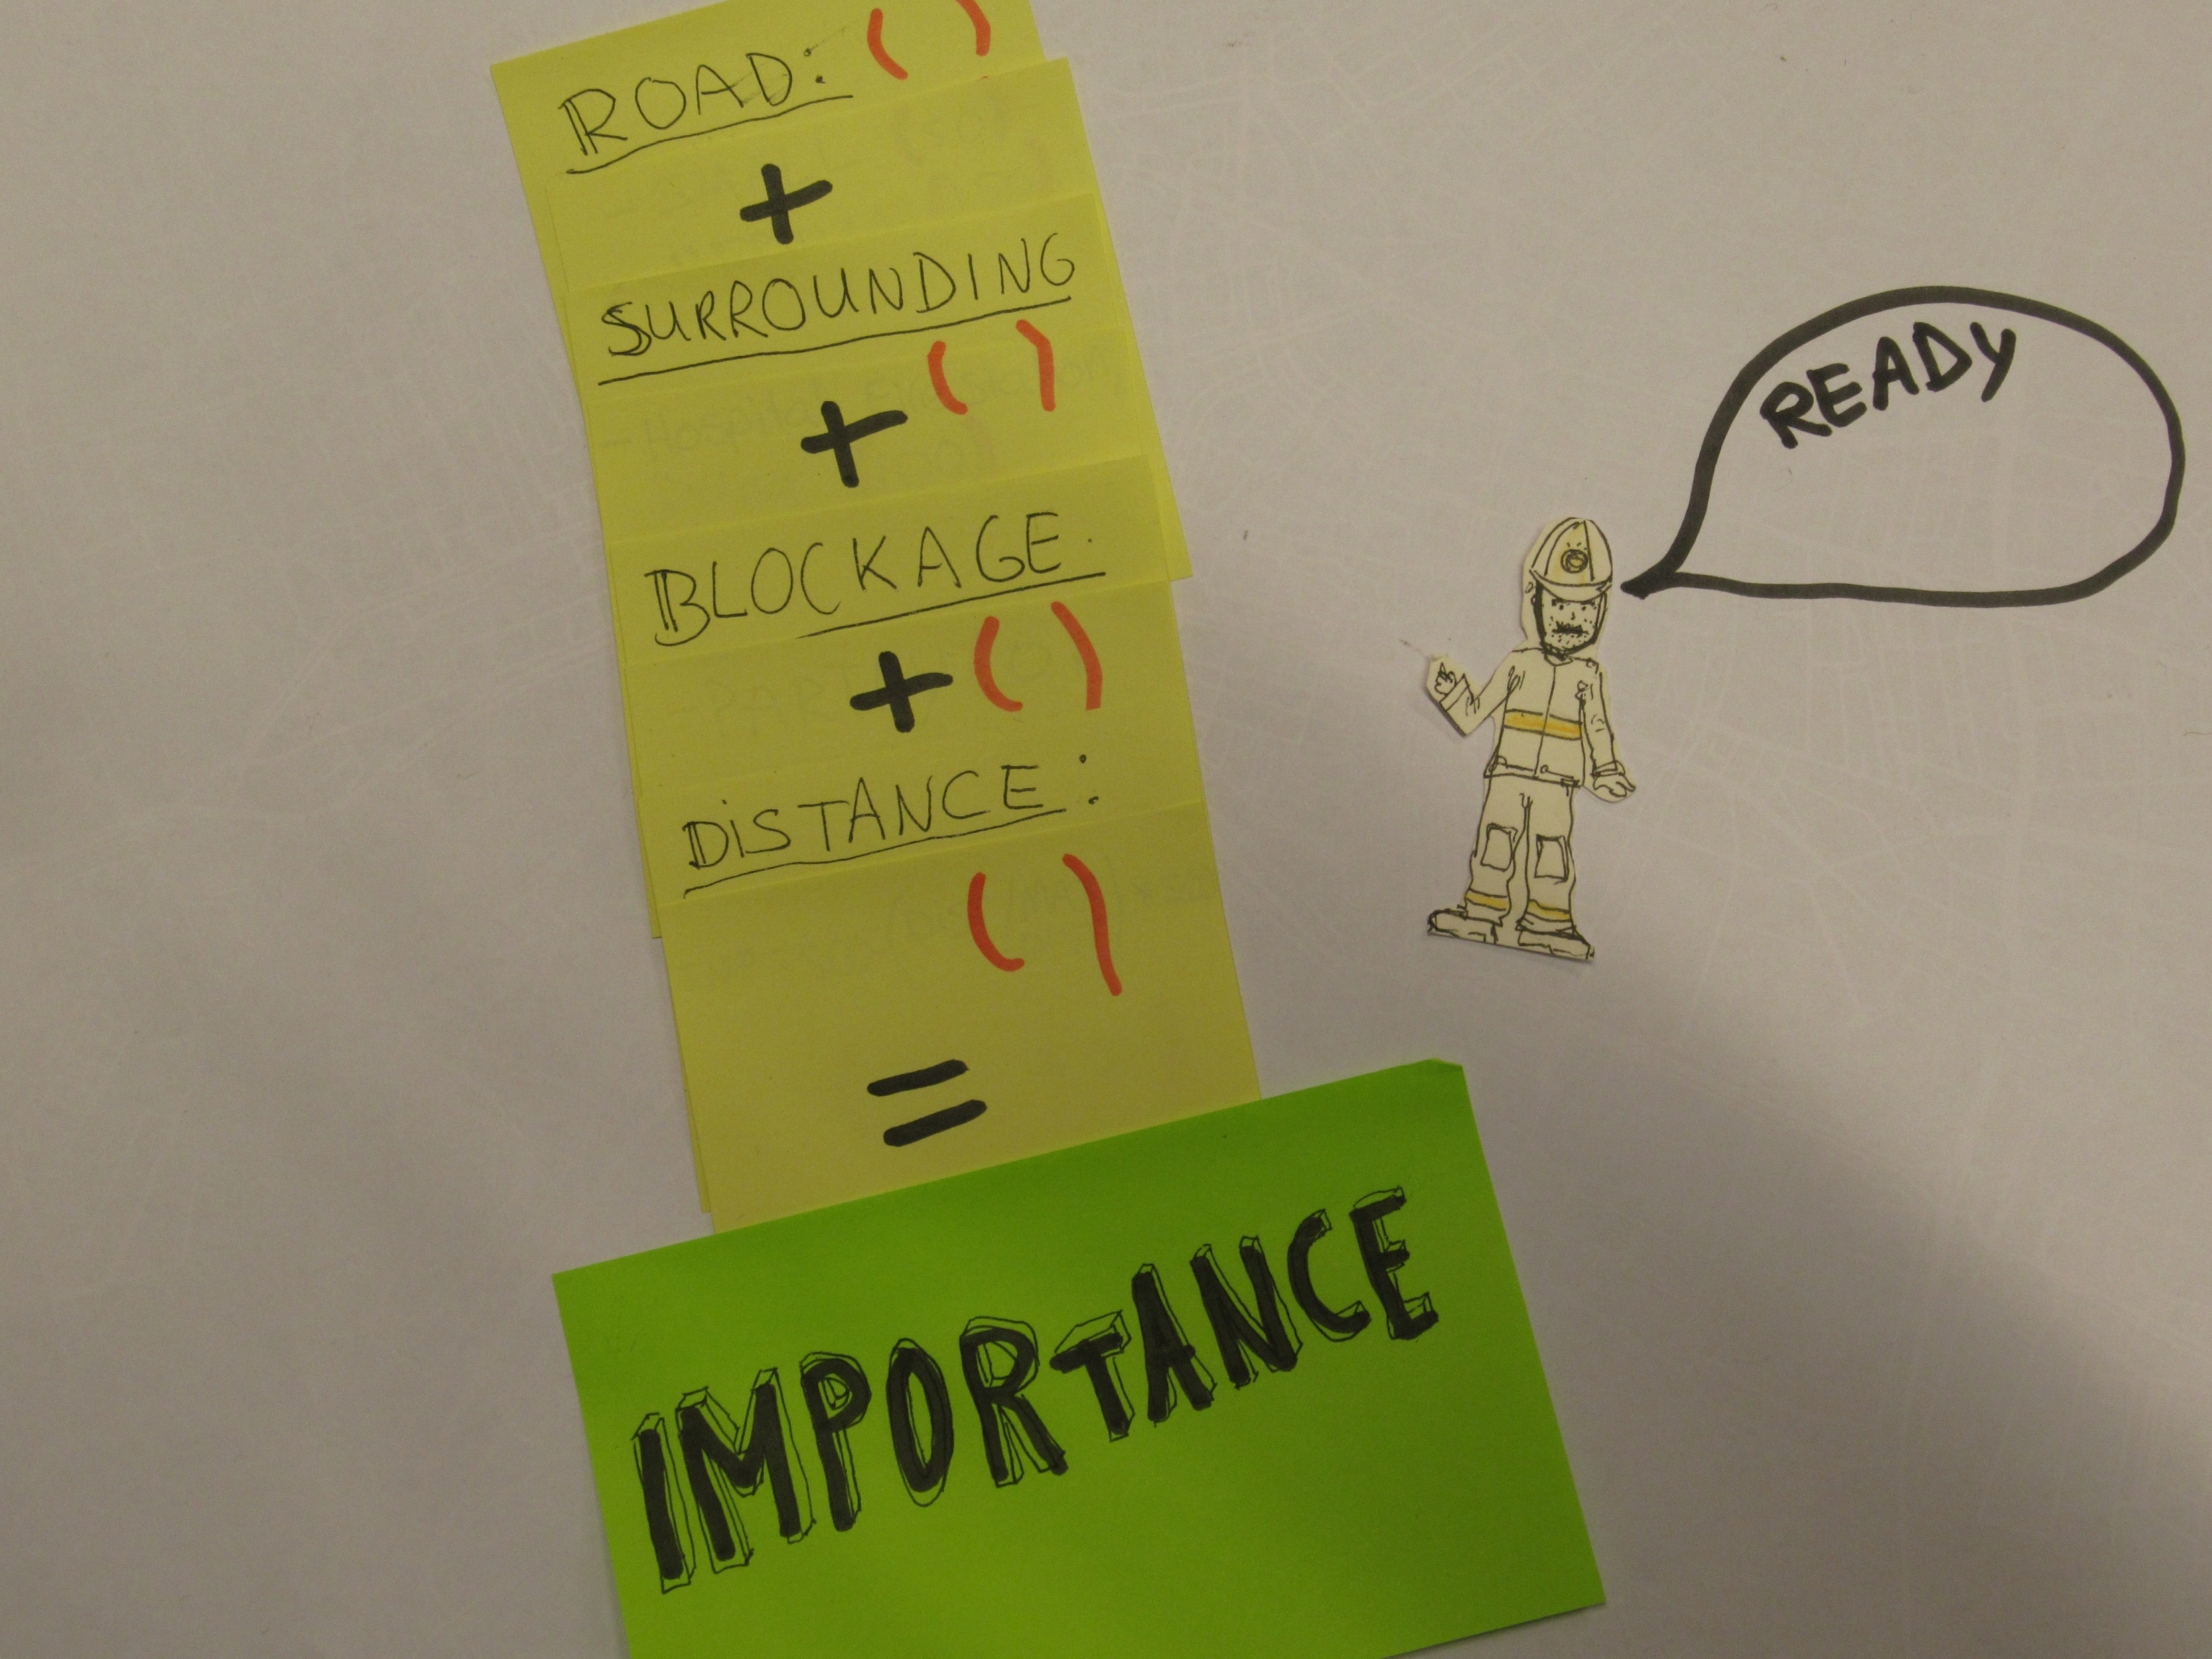 ROAD: ( )
+
SURROUNDING
+ ( )
BLOCKAGE.
+ ( )
DiSTANCE:
( )
=
IMPORTANCE
READY